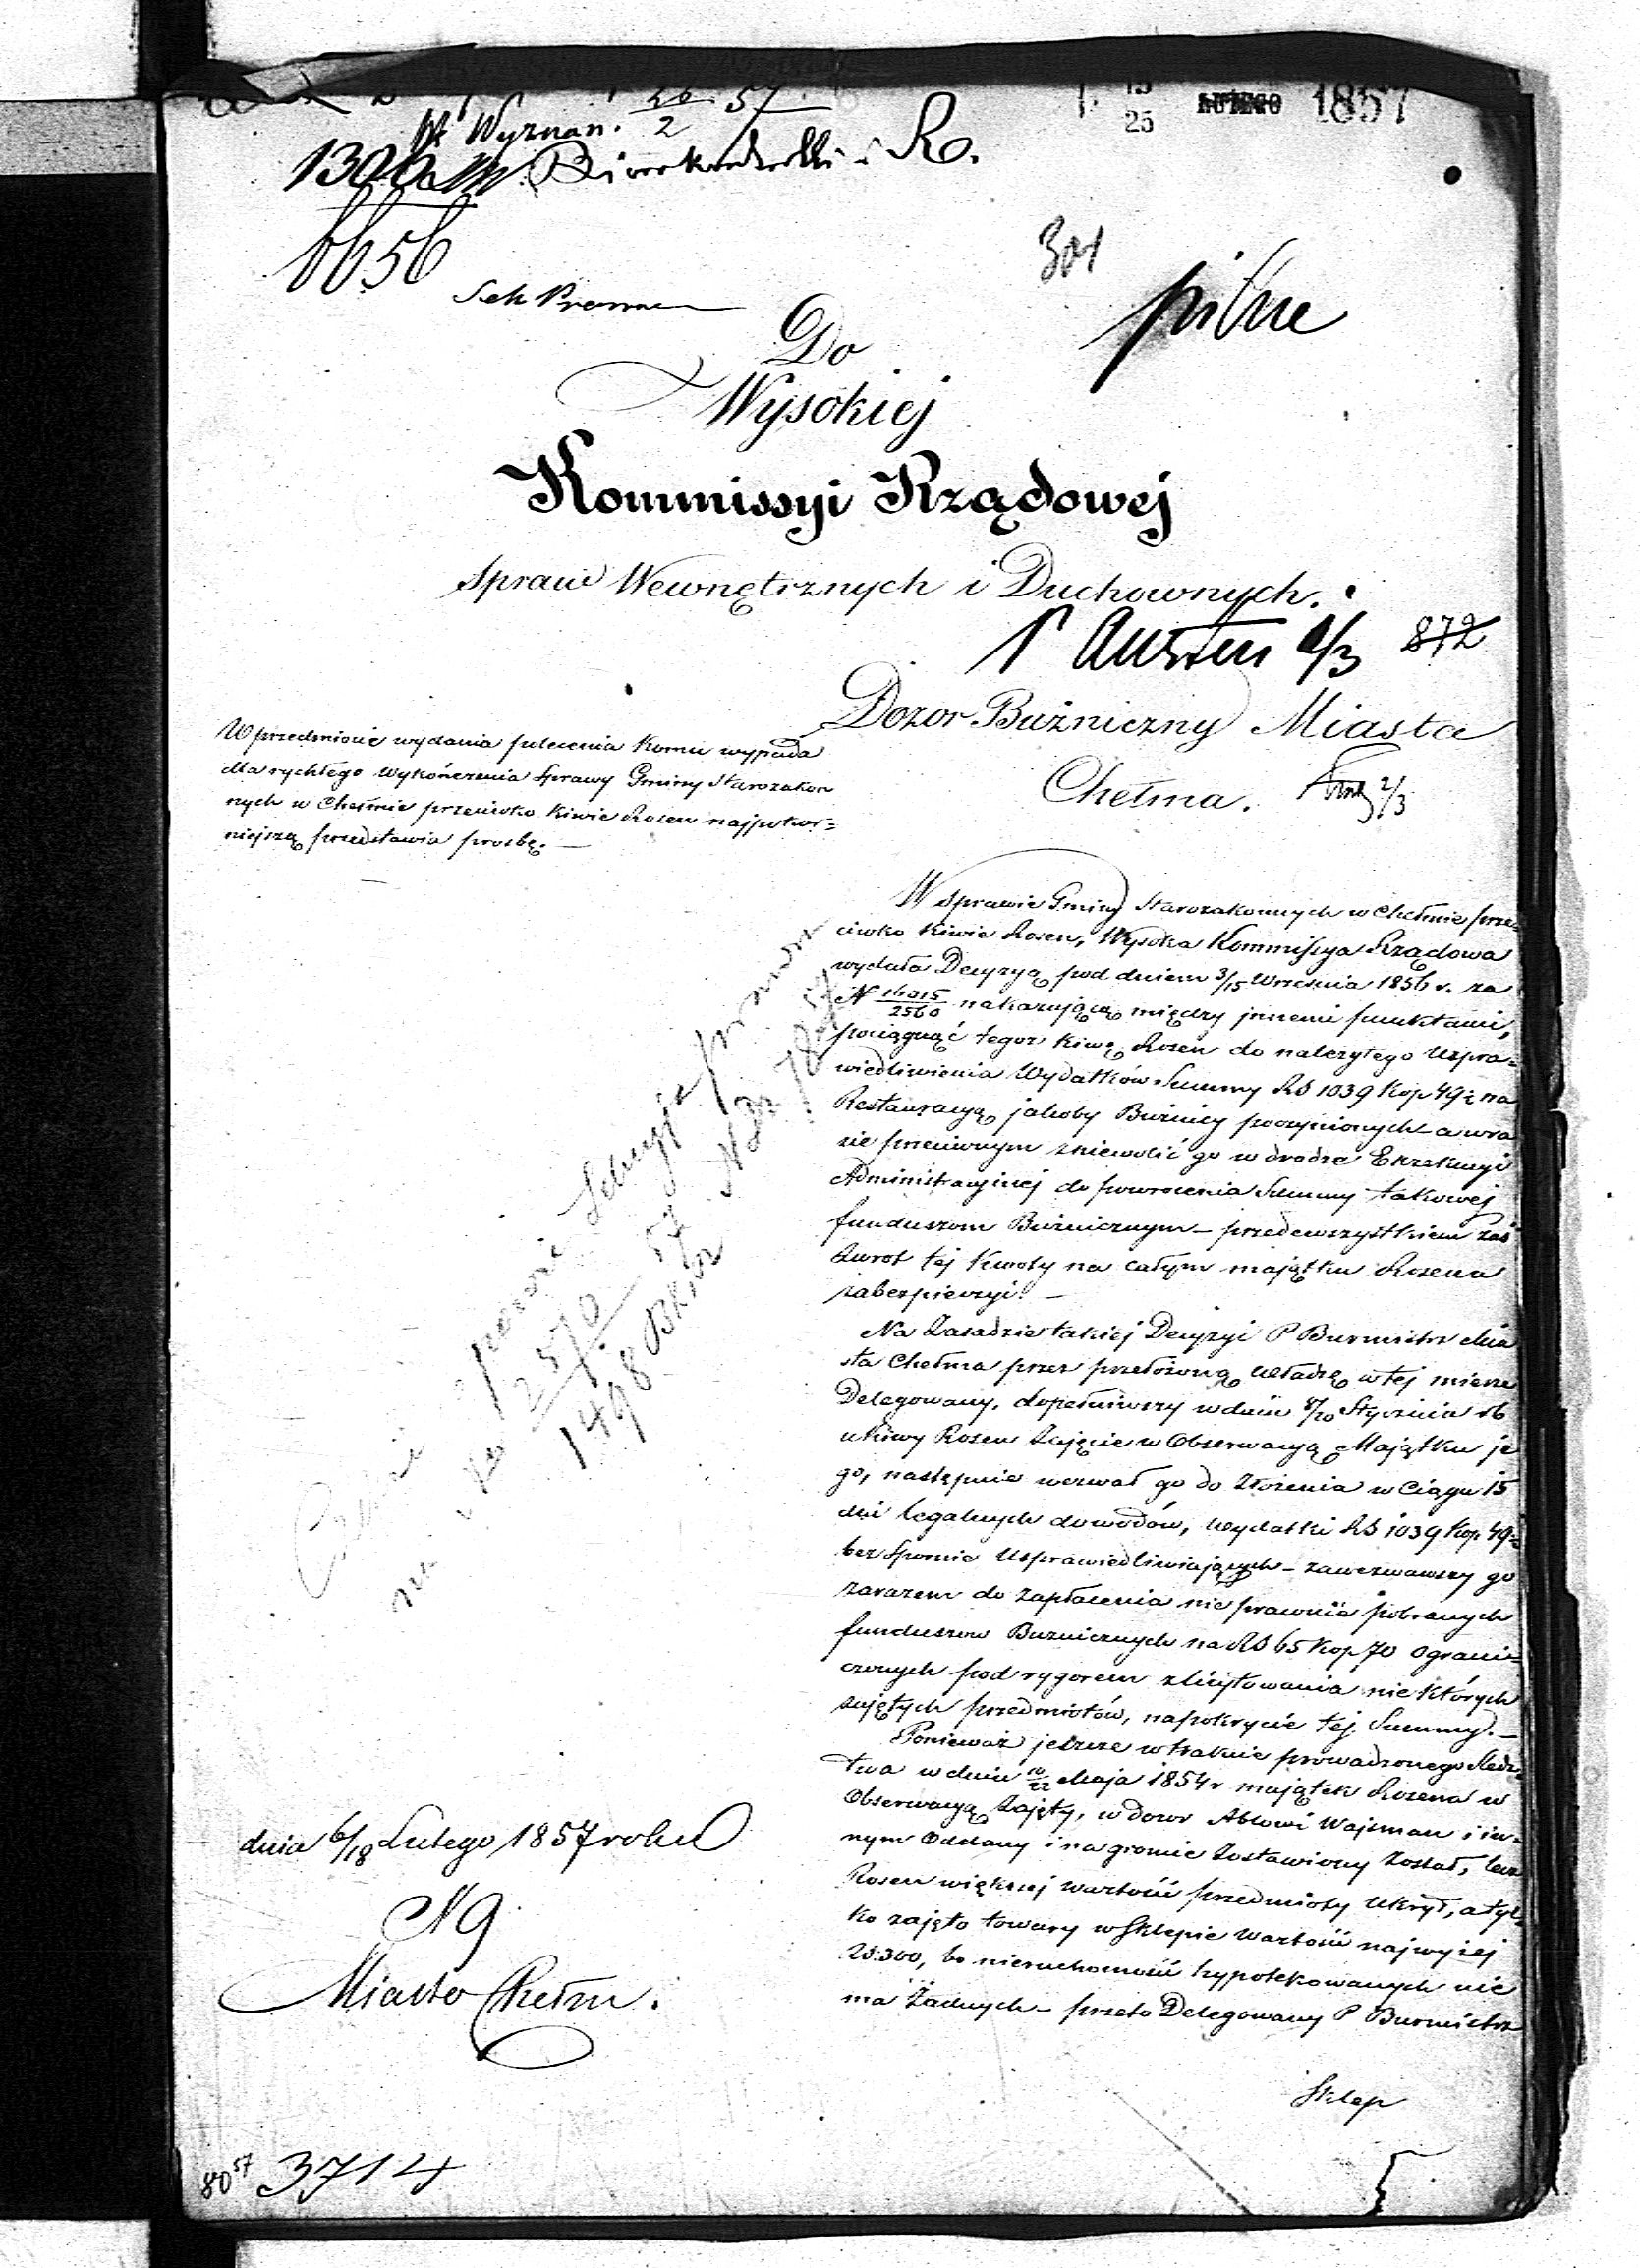 26/2 57
13/25 LUTEGO 1857
W. Wyznań.
R.
6656
301
pilne
Do
Wysokiej
Kommissyi Rządowej
Spraw Wewnętrznych i Duchownych.
2/3 872
Dozor Bużniczny Miasta
Chełma. 2/3
W przedmiocie wydania polecenia komu wypada
dla rychłego wykończenia Sprawy Gminy Starozakon
nych w Chełmie przeciwko Kiwie Rosen najpokor=
niejszą przedstawia prośbę. —
W sprawie Gminy Starozakonnych w Chełmie prze=
ciwko Kiwie Rosen, Wysoka Kommissya Rządowa
wydała Decyzyą pod dniem 3/15 Września 1856 r. za
N 16015/2560 nakazującą między innemi punktami,
pociągnąć tegoż Kiwę Rosen do należytego Uspra=
wiedliwienia Wydatków Summy RS 1039 Kop 49½ na
Restauracyą jakoby Bużnicy poczynionych – a w ra
zie przeciwnym zniewolić go w drodze Exekucyi
Administracyjnej do powrócenia Summy takowej
funduszom Bużnicznym – przedewszystkiem zaś
Zwrot tej Kwoty na całym majątku Rosena
zabezpieczyć. —
Na Zasadzie takiej Decyzyi P Burmistrz Mia
sta Chełma przez przełożoną władzę w tej mierze
Delegowany, dopełniwszy w dniu 8/20 Stycznia rb
u Kiwy Rosen Zajęcie w Obserwacyą Majątku je
go, następnie wezwał go do złożenia w ciągu 15
dni legalnych dowodów, wydatki RS 1039 Kop. 49½
bez spornie Usprawiedliwiających – zawezwawszy go
zarazem do zapłacenia nie prawnie pobranych
funduszow Buznicznych na RS 65 Kop 70 ograni=
czonych pod rygorem zlicytowania nie których
zajętych przedmiotów, na pokrycie tej Summy. —
Ponieważ jeszcze w trakcie prowadzonego Śledz=
twa w dniu 10/22 Maja 1854 r majątek Rosena w
Obserwacyą Zajęty, w dozor Ablowi Wajsman i in=
nym Oddany i na gróncie Zostawiony Został, lecz
Rosen większej wartości przedmioty Ukrył, a tyl=
ko zajęto towary w Sklepie wartości najwyżej
RS: 300, bo nieruchomości hypotekowanych nie
ma Żadnych – przeto Delegowany P Burmistrz
Sklep
2570
1498
dnia 6/18 Lutego 1857 roku
N 9.
Miasto Chełm.
80 57 3714